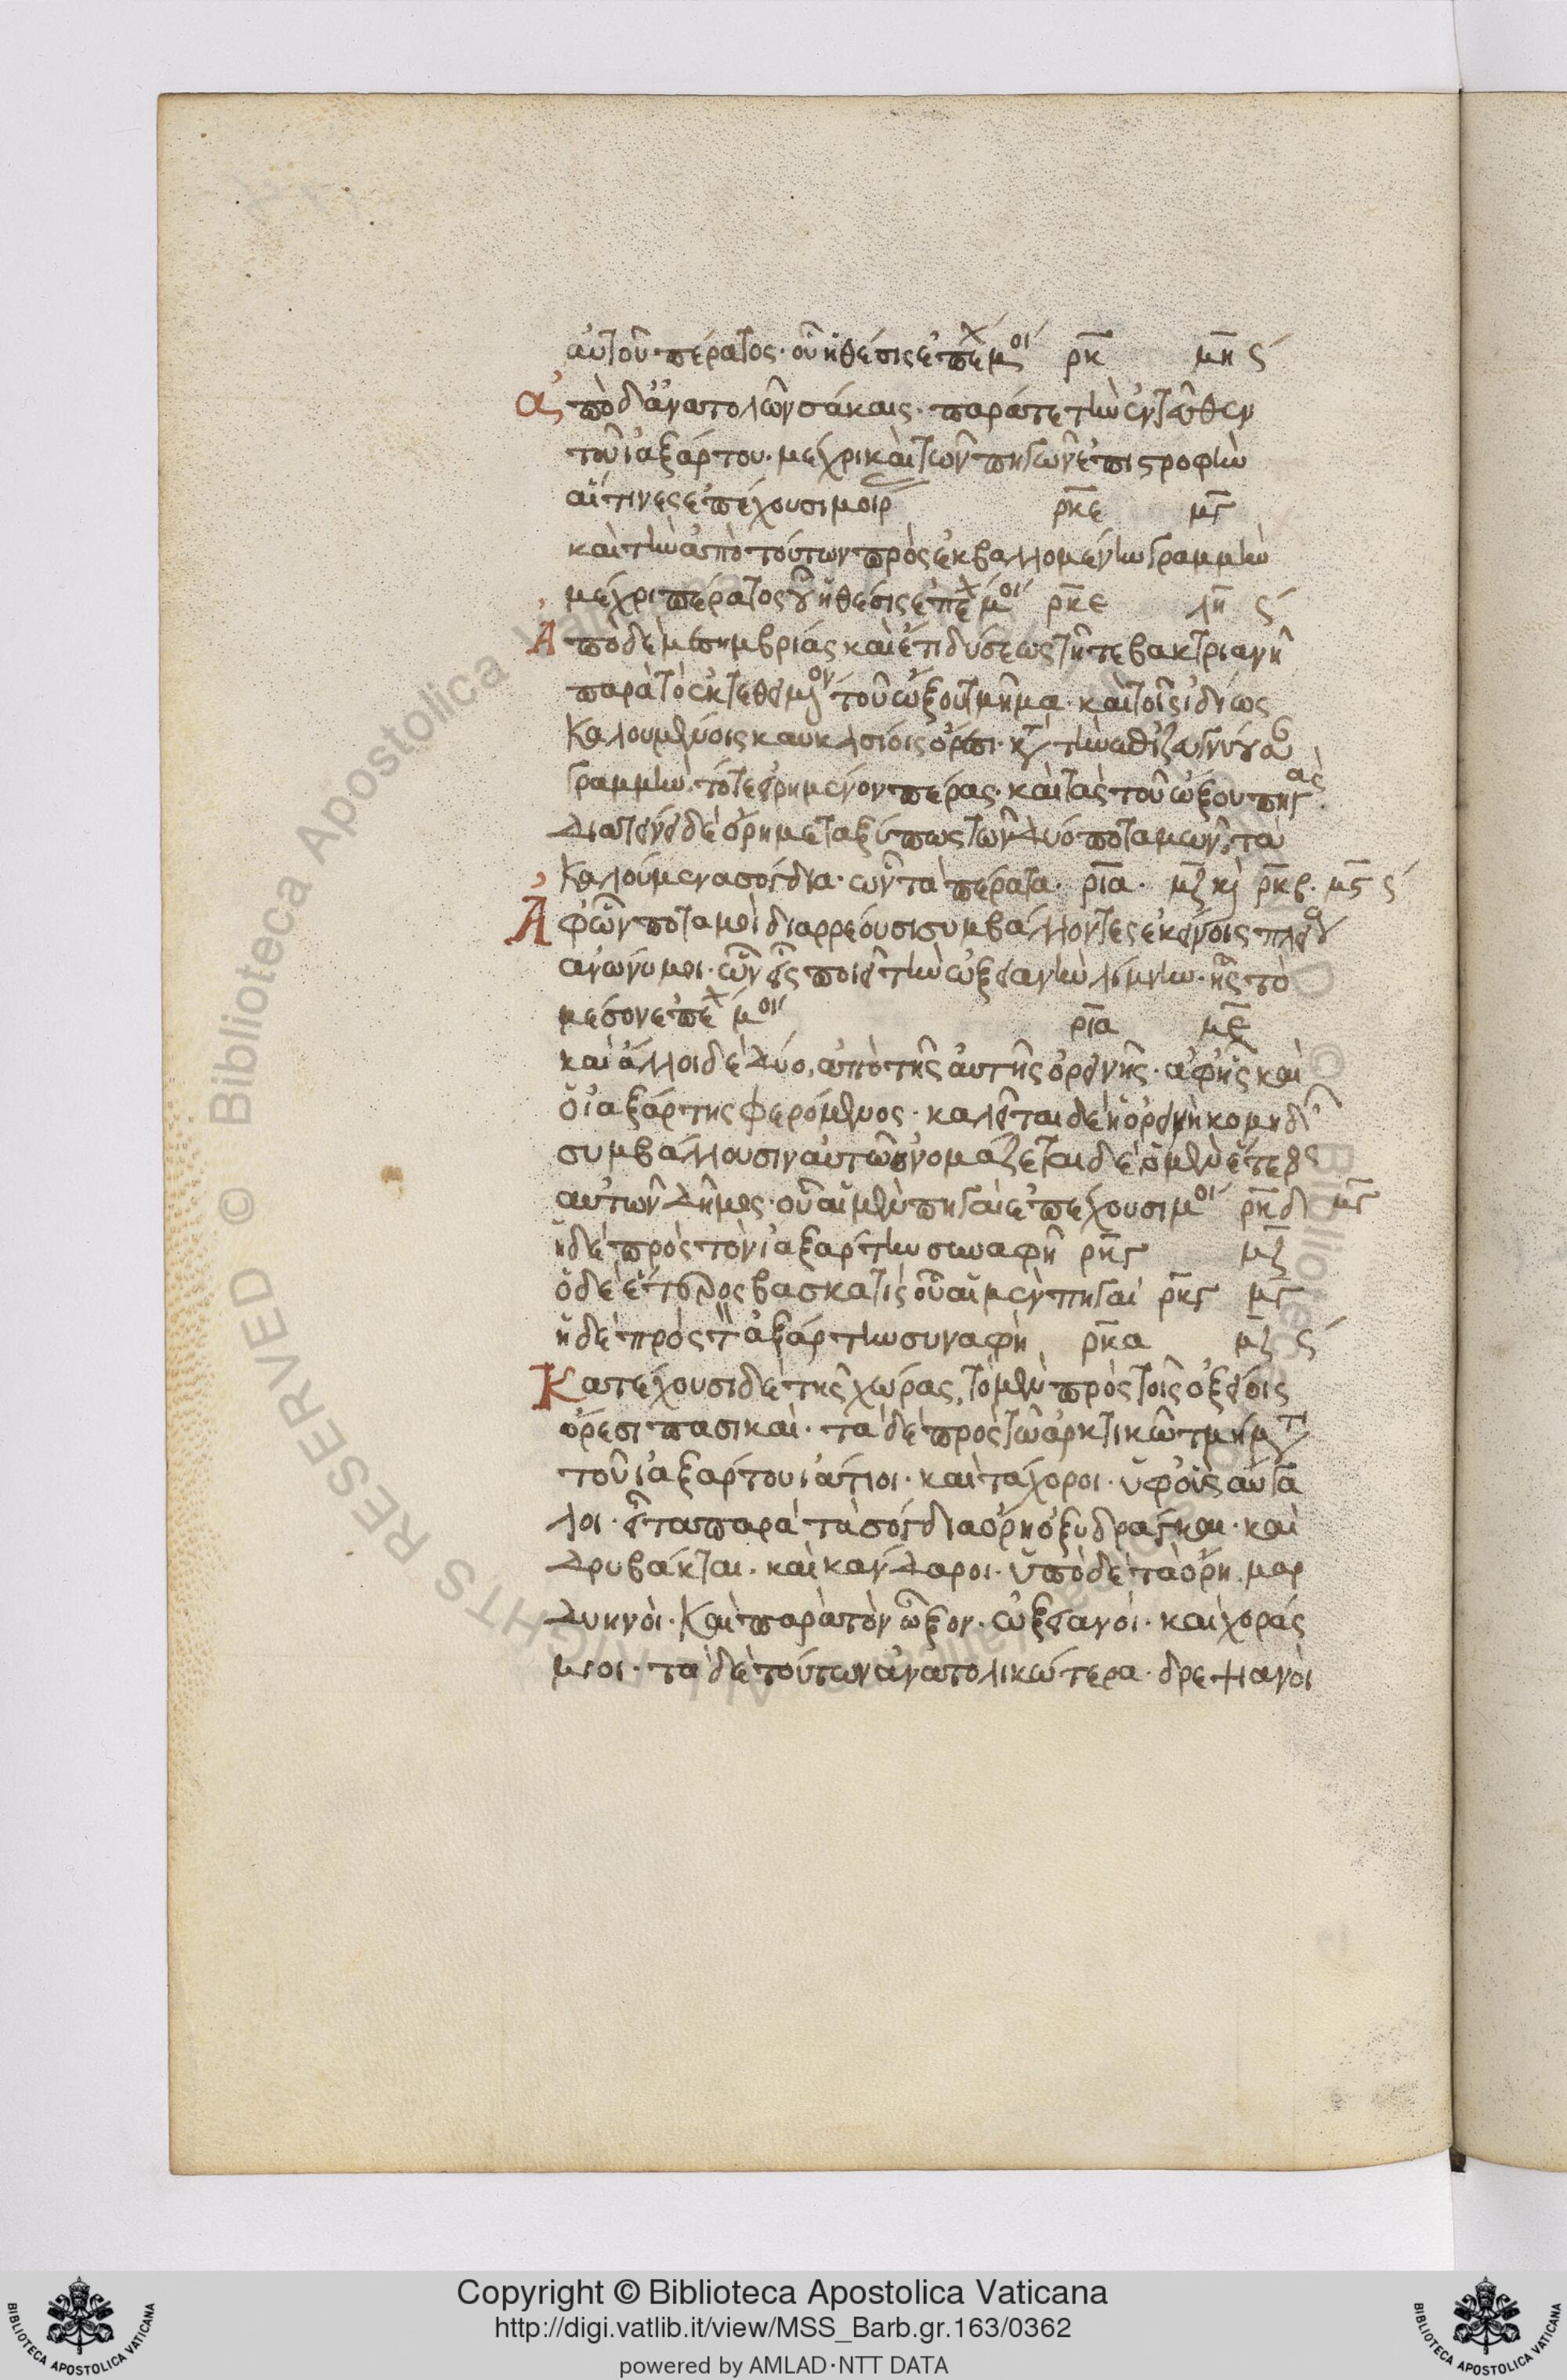 αὐτοῦ πέρατος· οὗ ἡ θέσις ἐπέχ μοί ρκ μη ς
ἀπὸ δ' ἀνατολῶν σάκαις· παρά τε τὴν ἐντεῦθεν
τοῦ ἰαξάρτου· μέχρι καὶ τῶν πηγῶν ἐπιστροφὴν
αἵτινες ἐπέχουσι μοίρ ρκε μγ
καὶ τὴν ἀπὸ τούτων προσεκβαλλομένην γραμμὴν
μέχρι πέρατος οὗ ἡ θέσις ἐπέχ μοί ρκε λη ς
Ἀπὸ δὲ μεσημβρίας καὶ ἔτι δύσεως τῆ τε βακτριανῆ
παρὰ τὸ ἐκτεθειμον τοῦ ὤξου τμῆμα· καὶ τοῖς ἰδίως
καλουμένοις καυκασίοις ὄρεσι·
γραμμὴν τό τε εἰρημένον πέρας· καὶ τὰς τοῦ ὤξου πηγάς
Διατείνει δὲ ὄρη μεταξύ πως τῶν δύο ποταμῶν, τὰ
καλούμενα σόγδια· ὧν τὰ πέρατα· ρια· μζ καὶ ρκβ· μς ς
Ἀφ' ὧν ποταμοὶ διαρρέουσι συμβάλλοντες ἐκείνοις
ἀνώνυμοι· ὧν εἷς ποιεῖ τὴν ὠξειανὴν λίμνην· ἧς τὸ
μέσον ἐπέχ μοί ρια με
καὶ ἄλλοι δὲ δύο, ἀπὸ τῆς αὐτῆς ὀρεινῆς· ἀφ' ἧς καὶ
ὁ ἰαξάρτης φερόμενος· καλεῖται δὲ ἡ ὀρεινὴ κομηδ
συμβάλλουσιν αὐτῶ ὀνομάζεται δὲ ὁ μὲν ἕτερος
αὐτῶν δῆμος· οὗ αἱ μὲν πηγαὶ ἐπέχουσι μοί ρκδ μγ
ἡ δὲ πρὸς τὸν ἰαξάρτην συναφὴ ρκγ μζ
ὁ δὲ ἕτερος βασκατίς οὗ αἱ μὲν πηγαὶ ρκγ μγ
ἡ δὲ πρὸς τ ἰαξάρτην συναφὴ ρκα μζ ς
Κατέχουσι δὲ τῆς χώρας, τὸ μὲν πρὸς τοῖς ὀξείοις
ὄρεσι πασικαὶ· τὰ δὲ πρὸς τῶ ἀρκτικῶ τμήματ
τοῦ ἰαξάρτου ἰάτιοι· καὶ τάχοροι· ὑφ' οἷς αὐγα
λοι· εἶτα παρὰ τὰ σόγδια ὄρη ὀξυδράγκαι· καὶ
Δρυβάκται· καὶ κάνδαροι· ὑπὸ δὲ τὰ ὄρη μαρ
δυκνοὶ· καὶ παρὰ τὸν ὦξον· ὠξειανοὶ· καὶ χοράς
μιοι· τὰ δὲ τούτων ἀνατολικώτερα· δρεψιανοὶ
Copyright © Biblioteca Apostolica Vaticana
http://digi.vatlib.it/view/MSS_Barb.gr.163/0362
powered by AMLAD·NTT DATA